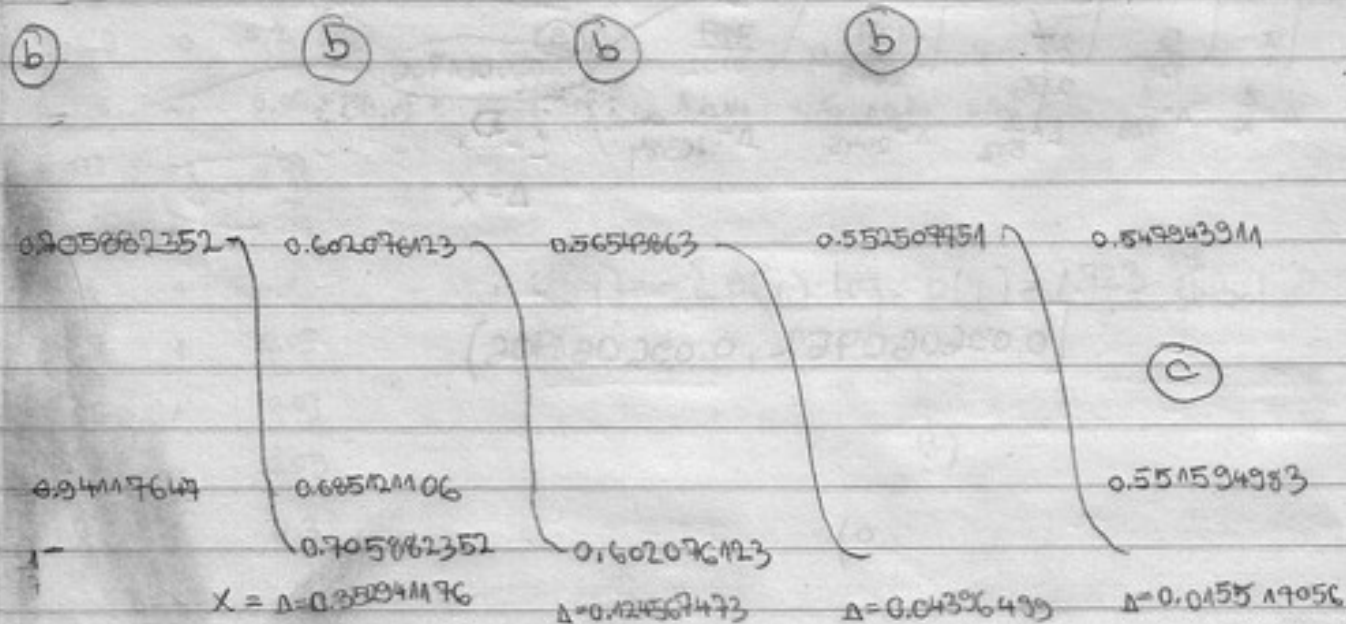 b b b b
0.705882352 0.602076123 0.56543863 0.552507751 0.547943911
c
0.941117647 0.685121106 0.551594983
1 0.705882352 0.602076123
X = Δ=0.352941176 Δ=0.124567473 Δ=0.04396499 Δ=0.015517056